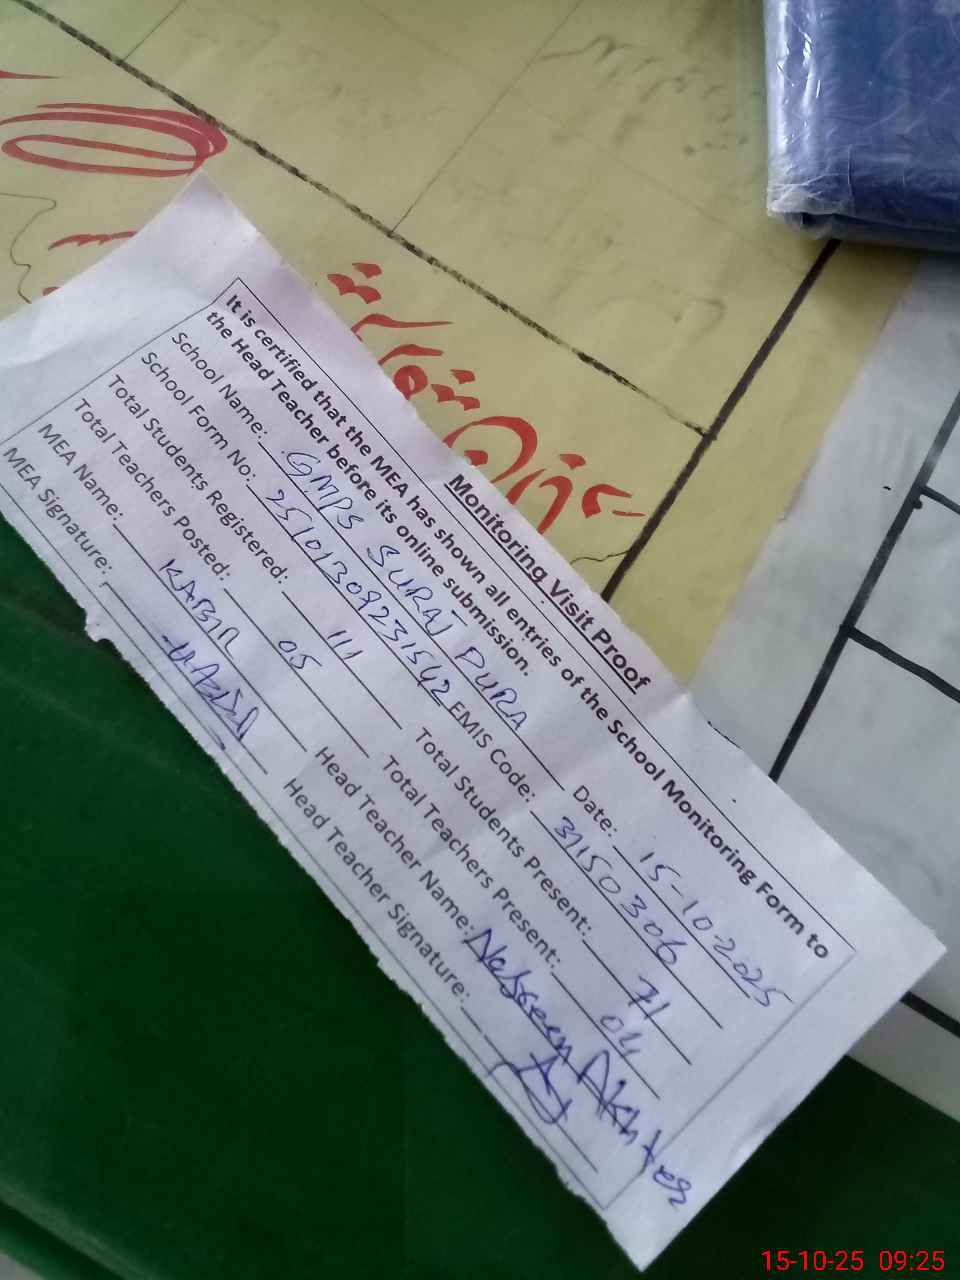 Monitoring Visit Proof
It is certified that the MEA has shown all entries of the School Monitoring Form to
the Head Teacher before its online submission.
School Name: GMPS SURAJ PURA Date: 15-10-2025
School Form No: 25101309231542 EMIS Code: 31150306
Total Students Registered: 111 Total Students Present: 71
Total Teachers Posted: 05 Total Teachers Present: 04
MEA Name: KABIR Head Teacher Name: Nabseen Akhter
MEA Signature: Head Teacher Signature:
15-10-25 09:25